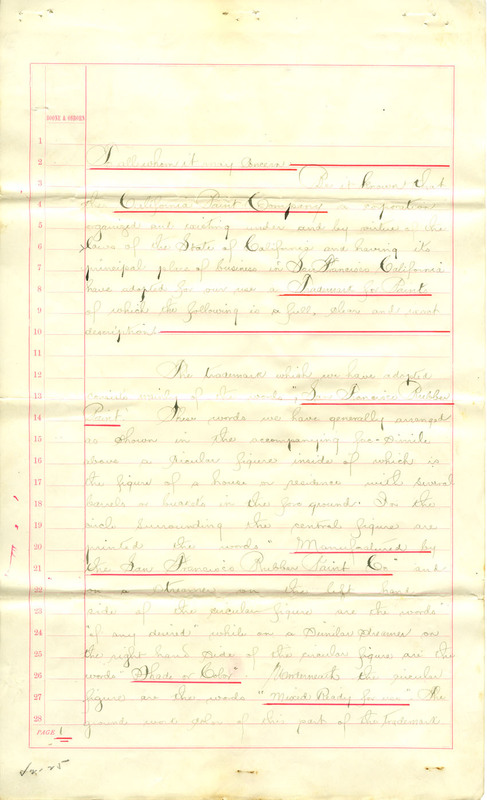 BOONE & OSBORN
1
2 To all whom it may Concern
3 Be it known that
4 the California Paint Company a corporation
5 organized and existing under and by virtue of the
6 Laws of the State of California and having its
7 principal place of business in San Francisco California
8 have adopted for our use a Trademark for Paints
9 of which the following is a full, clear and exact
10 description
11
12 The trademark which we have adopted
13 consists of the words "San Francisco Rubber
14 Paint" These words we have generally arranged
15 as shown in the accompanying fac-simile
16 above a circular figure inside of which is
17 the figure of a house or residence with several
18 barrels or in the fore ground. In the
19 circle surrounding the central figure are
20 printed the words "Manufactured by
21 the San Francisco Rubber Paint Co" and
22 on a streamer on the left hand
23 side of the circular figure are the words
24 "of any desired" while on a similar streamer on
25 the right hand side of the circular figure are the
26 words "Shade or Color" Underneath the circular
27 figure are the words "Mixed Ready for use" The
28 ground work color of this part of the trademark
PAGE 1